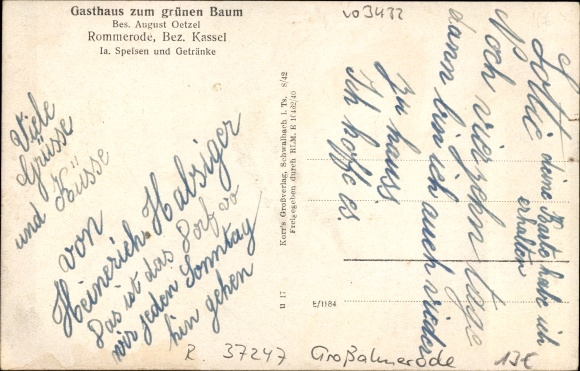 Gasthaus zum grünen Baum
Bes. August Oetzel
Rommerode, Bez. Kassel
Ia. Speisen und Getränke
Viele
Grüsse
und Küsse
von
Heinerich Halsiger
Das ist das Dorf wo
wir jeden Sonntag
hin gehen
Korr's Großverlag, Schwalbach i. Ts. 8/42
Freigegeben durch RLM. E 1/432/40
u 17
E/1184
v03432
Lottie
deine Karte habe ich
erhalten
Noch vierzehn tage
dann bin ich auch wieder
zu hauss
Ich hoffe is
R. 37247 Großalmerode 13€